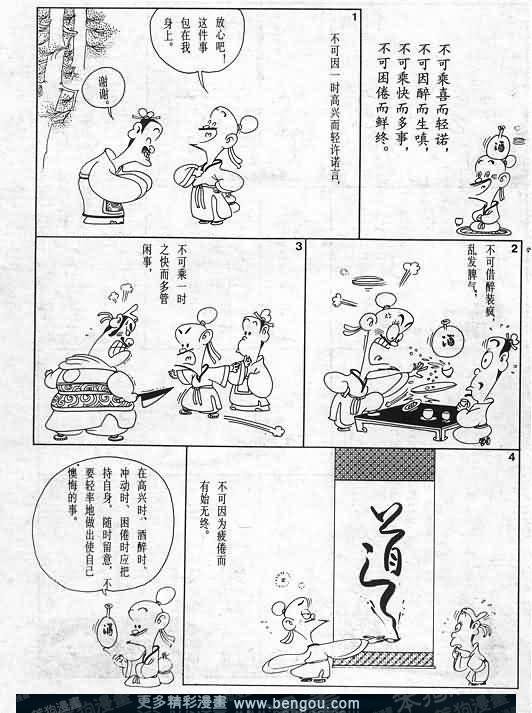 不可乘喜而轻诺，
不可因醉而生嗔，
不可乘快而多事，
不可因倦而鲜终。
酒
1
不可因一时高兴而轻许诺言，
放心吧！
这件事
包在我
身上。
谢谢。
2
不可借醉装疯，
乱发脾气，
酒
3
不可乘一时
之快而多管
闲事，
4
不可因为疲倦而
有始无终。
道
在高兴时、酒醉时、
冲动时、困倦时应把
持自身，随时留意，不
要轻率地做出使自己
懊悔的事。
酒
更多精彩漫畫 www.bengou.com
笨狗漫畫